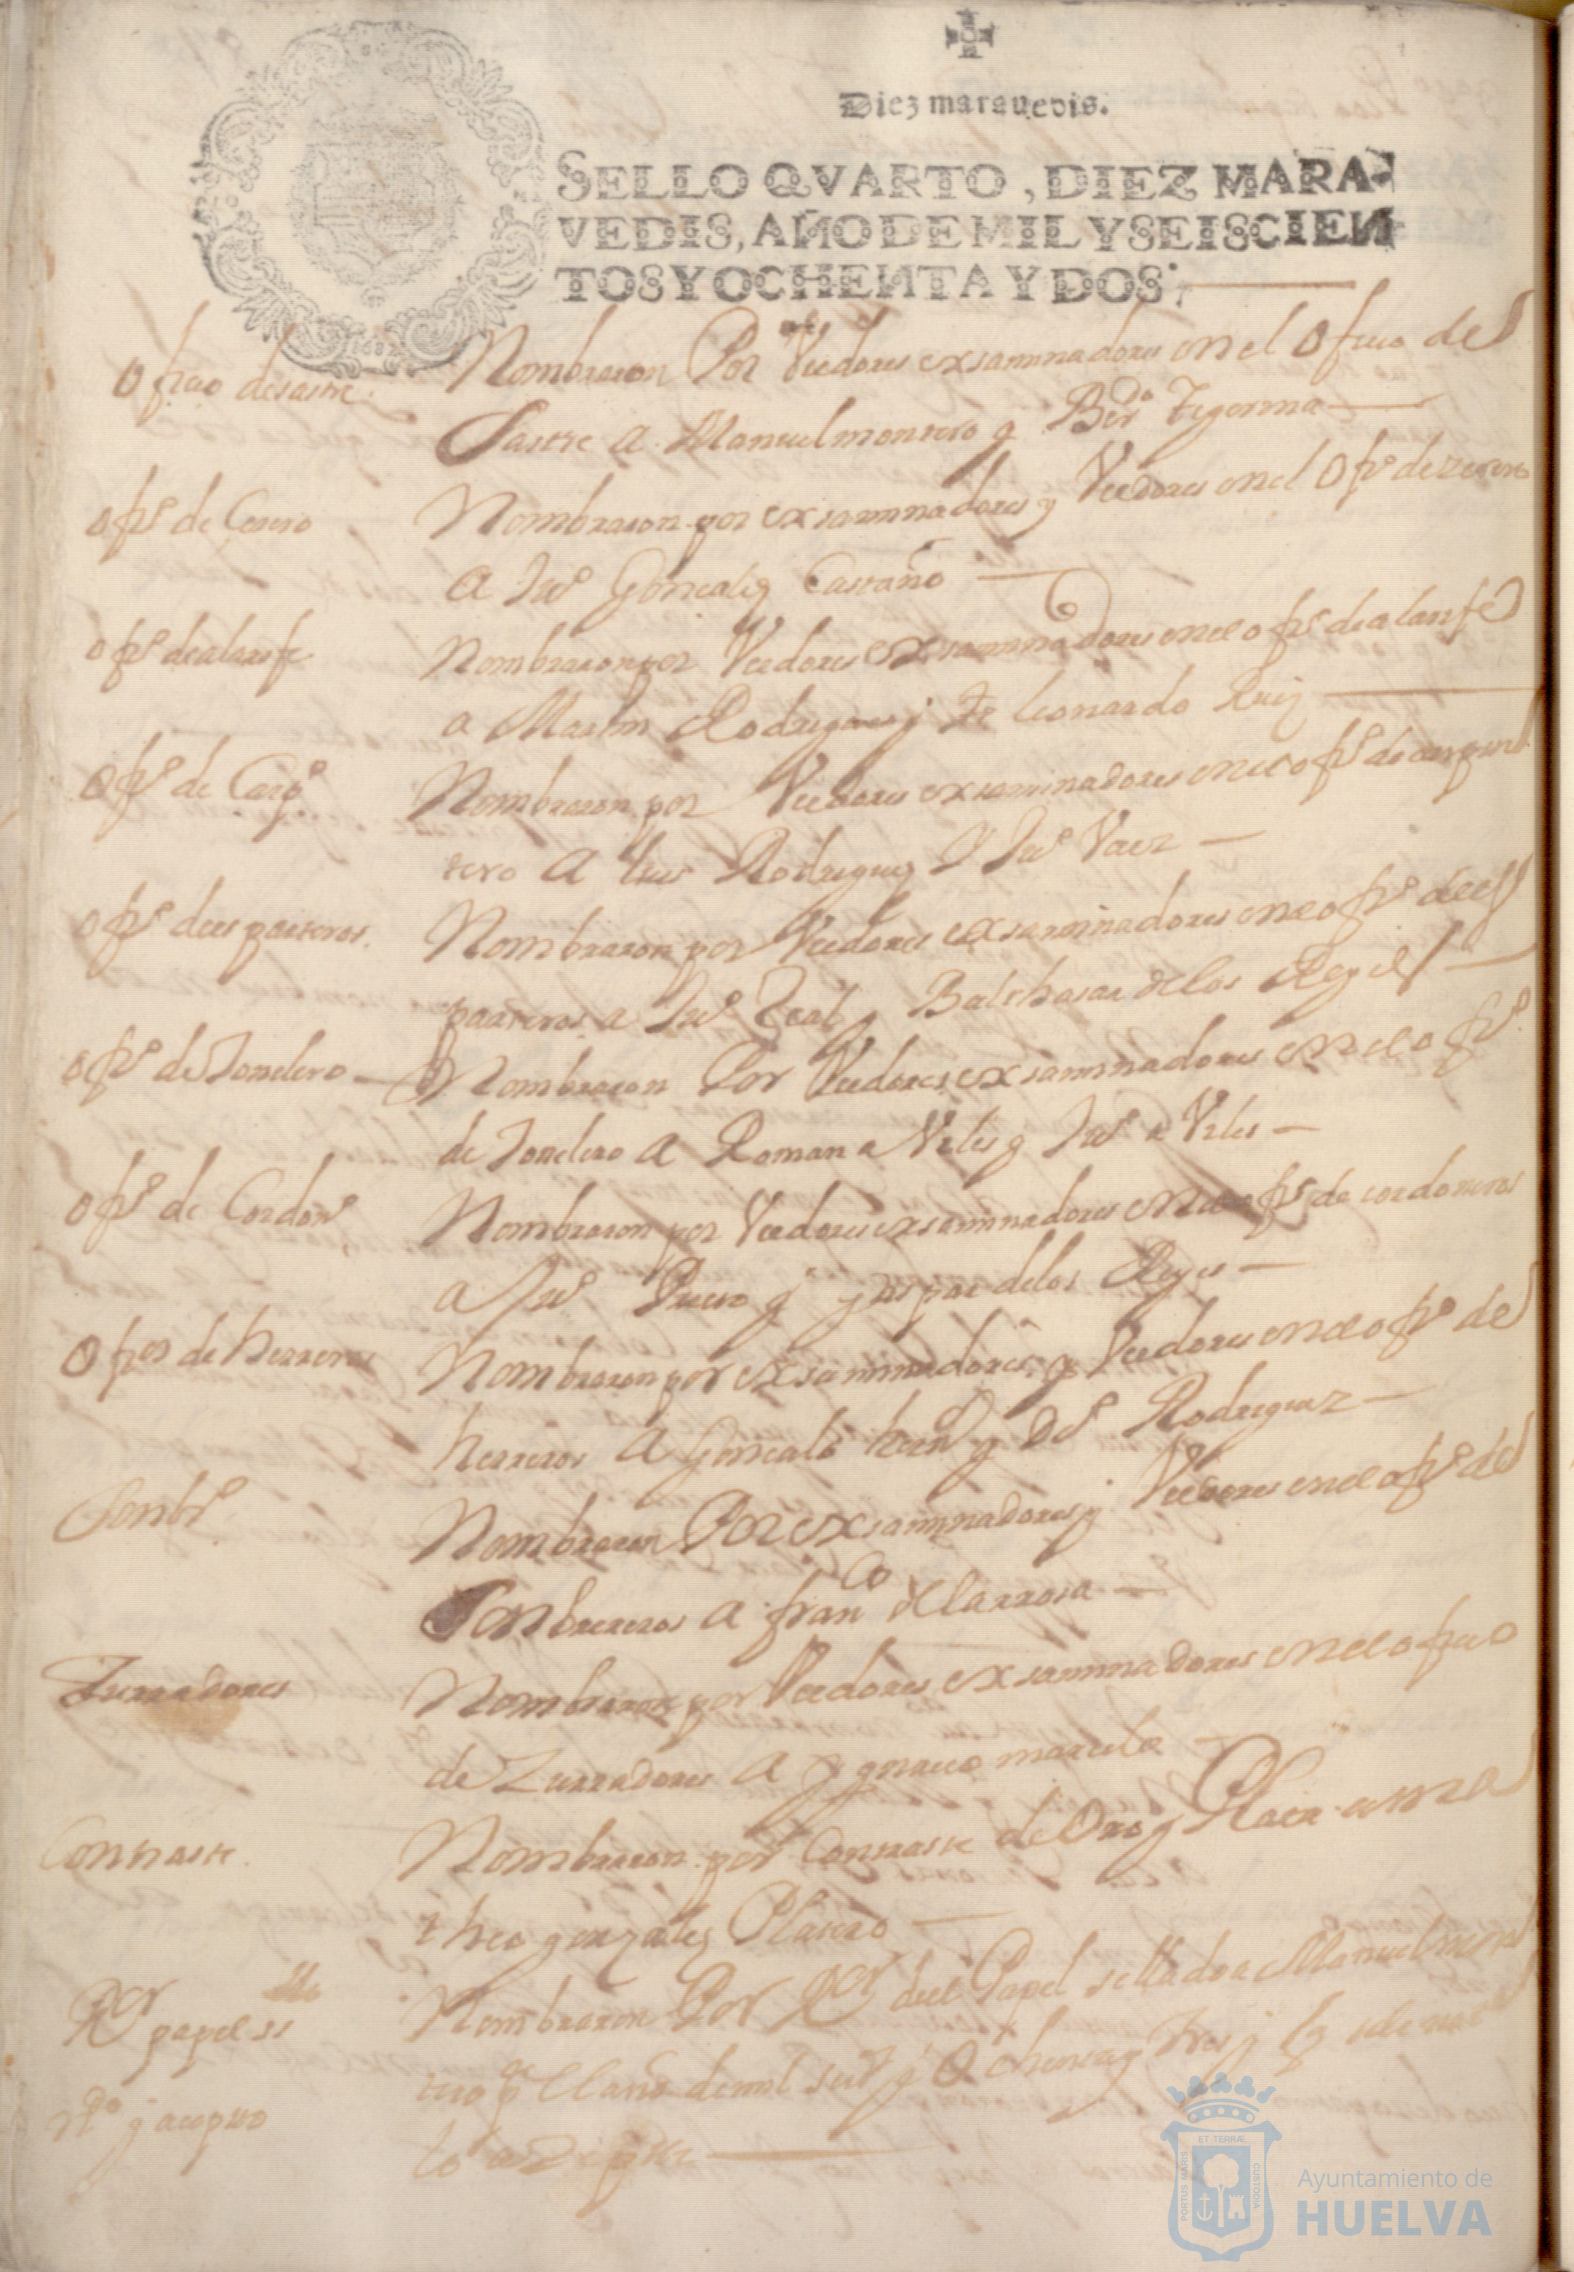 Diez marauedis.
SELLO QVARTO, DIEZ MARA-
VEDIS, AÑO DE MIL Y SEISCIEN
TOS Y OCHENTA Y DOS.
Ofiçio de sastre.
Nombraron Por Veedores exsaminadores en el Ofiçio de
Sastre a Manuel montero y Ber.do
offº de Cerero
Nombraron por exsaminadores y Veedores en el Offº de zerero
A Juº Gonçales Castaño
offº de alarife
Nombraron por Veedores exsaminadores en el offº de alarife
a Martin Rodrigues y Leonardo Ruiz
Offº de Carpº
Nombraron por Veedores exsaminadores en el offº de carpin
tero A Luis Rodriguez Y Juº Vaez
offº de esparteros.
Nombraron por Veedores exsaminadores en el offº de es
parteros a Juº Leal y Balthasar de los Reyes
offº de Tonelero
Nombraron Por Veedores exsaminadores en el offº
de Tonelero A Roman a Viles y Juº a Viles
offº de Cordonº
Nombraron por Veedores exsaminadores en el offº de cordoneros
a Juº y gaspar de los Reyes
Offºs de herreros
Nombraron por exsaminadores y Veedores en el offº de
herreros A Gonçalo hern y Dº Rodriguez
Sonbrº
Nombraron Por exsaminadores y Veedores en el offº de
Sonbrereros A franco
Zurradores
Nombraron por Veedores exsaminadores en el ofiçio
de Zurradores A Ygnacio
Contraste.
Nombraron por Contraste de Oro y Plata a
theo gonzales Platero
Rer papel sellº
Nombraron Por Rer del Papel sellado a Manuel mon
tero pª el año de mil seisº y Ochenta y tres y
to
ntº y acepto
ET TERRÆ
PORTUS MARIS
CUSTODIA
Ayuntamiento de
HUELVA